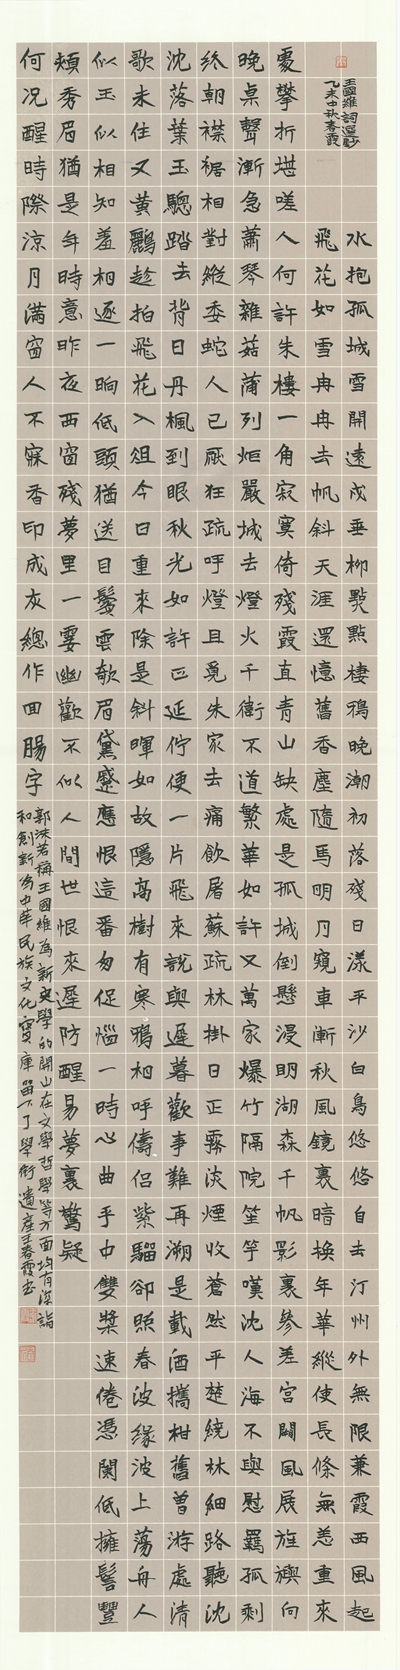 王國維詞選抄
乙未中秋春霞
水抱孤城雪開遠戍垂柳點點棲鴉晚潮初落殘日漾平沙白鳥悠悠自去汀州外無限蒹霞西風起
飛花如雪冉冉去帆斜天涯還憶舊香塵隨馬明月窺車漸秋風鏡裏暗換年華縱使長條無恙重來
處攀折堪嗟人何許朱樓一角寂寞倚殘霞直青山缺處是孤城倒懸浸明湖森千帆影裏參差宮闕風展旌旟向
晚桌聲漸急蕭琴雜菰蒲列炬嚴城去燈火千衢不道繁華如許又萬家爆竹隔院笙竽嘆沈人海不與慰羈孤剩
終朝襟裾相對縱委蛇人已厭狂疏呼燈且覓朱家去痛飲屠蘇疏林掛日正霧淡煙收蒼然平楚繞林細路聽沈
沈落葉玉驄踏去背日丹楓到眼秋光如許正延佇便一片飛來說與遲暮歡事難再溯是載酒攜柑舊曾游處清
歌未住又黃鸝趁拍飛花入俎今日重來除是斜暉如故隱高樹有寒鴉相呼儔侶紫騮卻照春波緣波上蕩舟人
似玉似相知羞相逐一晌低頭猶送目鬢雲欹眉黛蹙應恨這番匆促惱一時心曲手中雙槳速倦憑闌低擁髻豐
頰秀眉猶是年時意昨夜西窗殘夢里一霎幽歡不似人間世恨來遲防醒易夢裏驚疑
何況醒時際涼月滿窗人不寐香印成灰總作回腸字
郭沫若稱王國維為新史學的開山在文學哲學等方面均有深詣
和創新為中華民族文化寶庫留下了學術遺產王春霞書